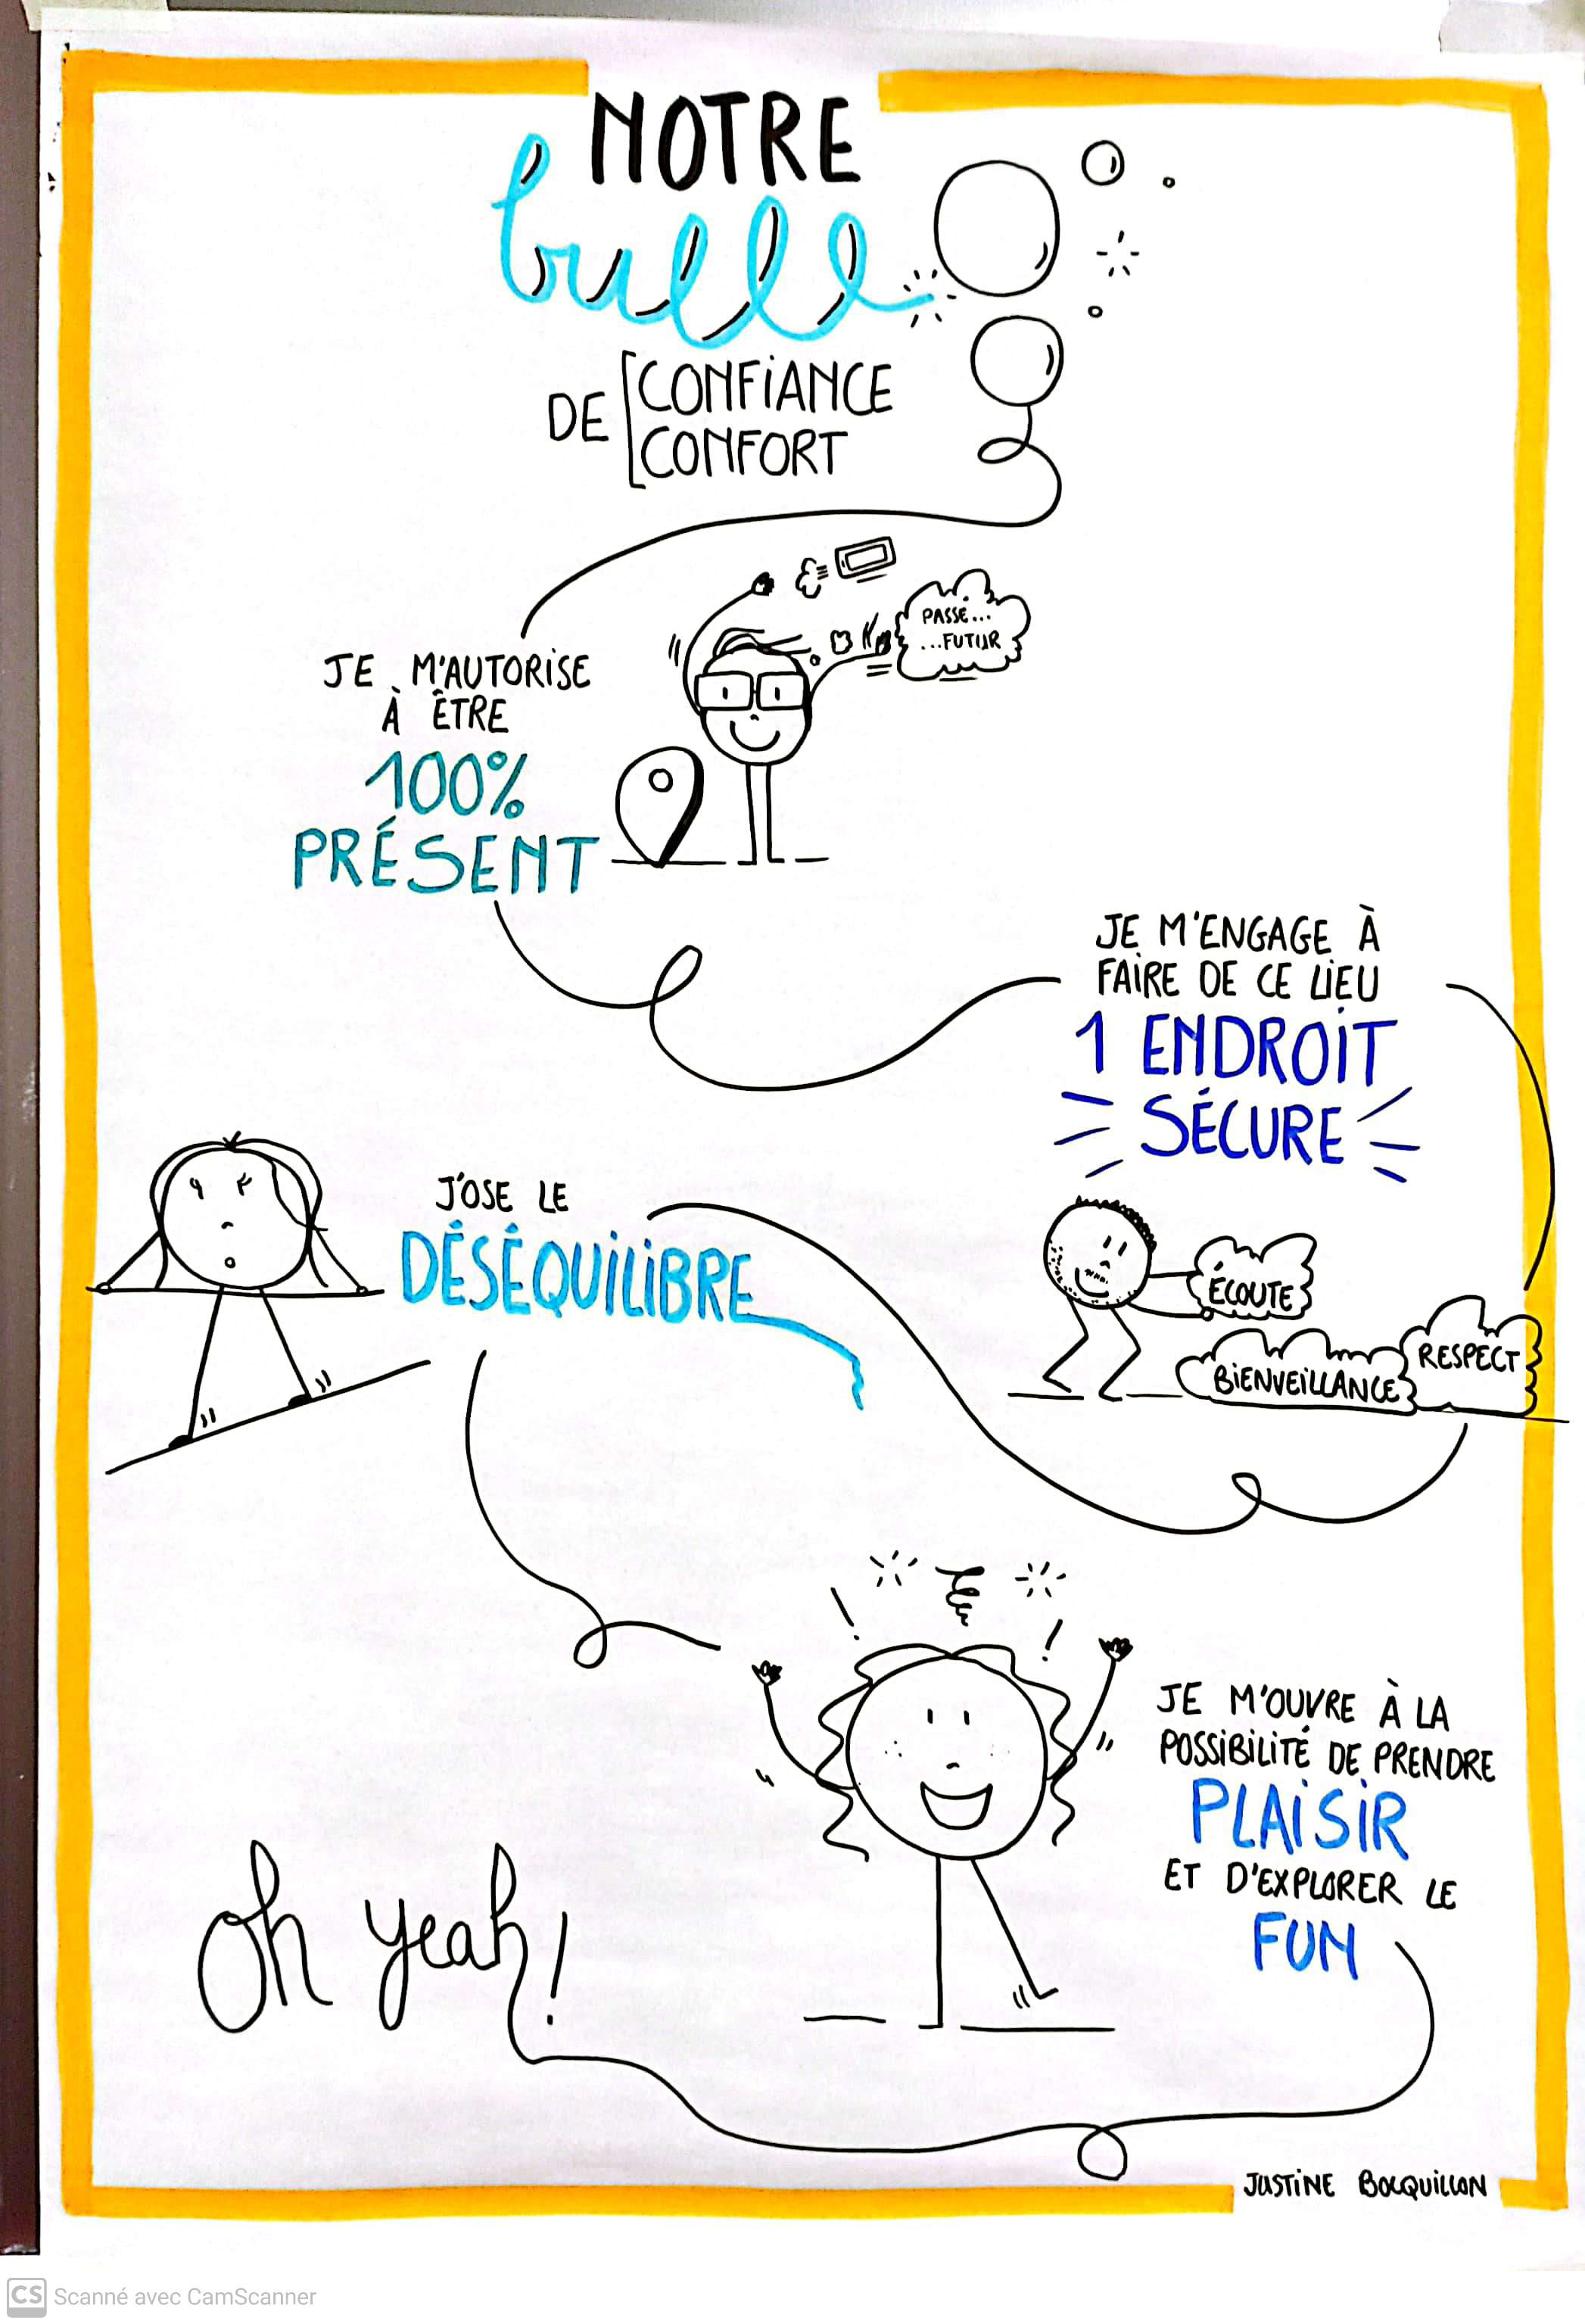 NOTRE
bulle
DE CONFIANCE
CONFORT
PASSÉ...
...FUTUR
JE M'AUTORISE
À ÊTRE
100%
PRÉSENT
JE M'ENGAGE À
FAIRE DE CE LIEU
1 ENDROIT
SÉCURE
J'OSE LE
DÉSÉQUILIBRE
ÉCOUTE
RESPECT
BIENVEILLANCE
JE M'OUVRE À LA
POSSIBILITÉ DE PRENDRE
PLAISIR
ET D'EXPLORER LE
FUN
oh yeah!
JUSTINE BOCQUILLON
CS Scanné avec CamScanner